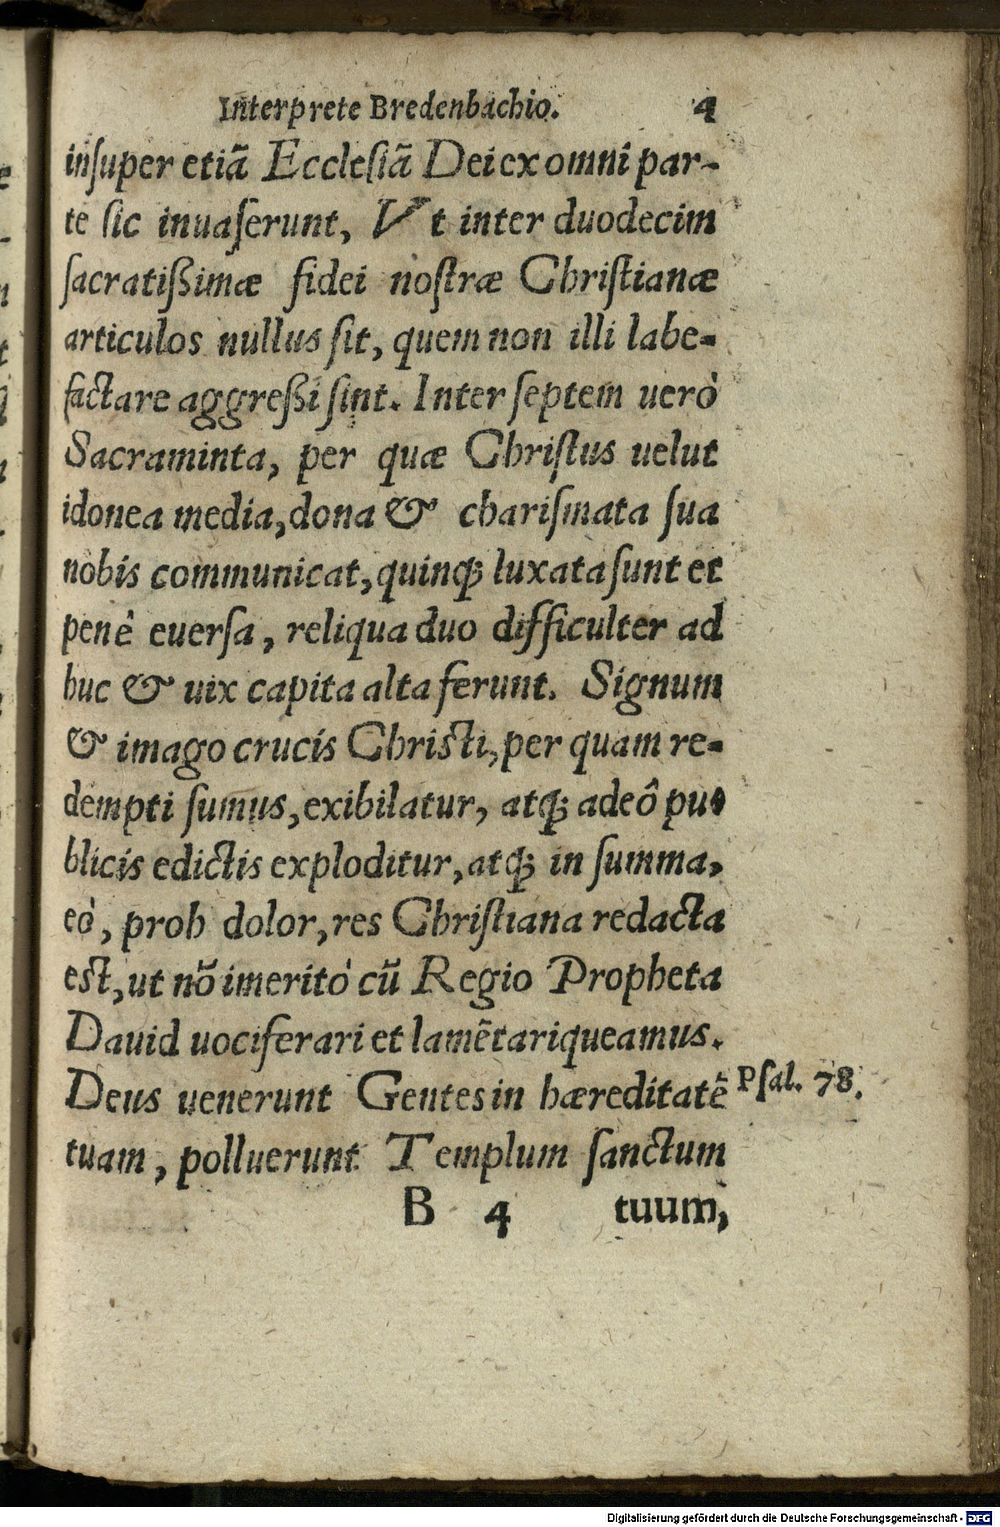 Interprete Bredenbachio. 4
inſuper etiã Eccleſiã Dei ex omni par-
te ſic inuaſerunt, Vt inter duodecim
ſacratißimæ fidei noſtræ Chriſtianæ
articulos nullus ſit, quem non illi labe-
factare aggreßi ſint. Inter ſeptem uerò
Sacraminta, per quæ Chriſtus uelut
idonea media, dona & chariſmata ſua
nobis communicat, quinq; luxata ſunt et
penè euerſa, reliqua duo difficulter ad
huc & uix capita alta ferunt. Signum
& imago crucis Christi, per quam re-
dempti ſumus, exibilatur, atq; adeô pu-
blicis edictis exploditur, atq; in ſumma,
eò, proh dolor, res Chriſtiana redacta
est, ut nõ imeritò cũ Regio Propheta
Dauid uociferari et lamẽtari queamus.
Deus uenerunt Gentes in hæreditatẽ Pſal. 78.
tuam, polluerunt Templum ſanctum
B 4 tuum,
Digitalisierung gefördert durch die Deutsche Forschungsgemeinschaft - DFG